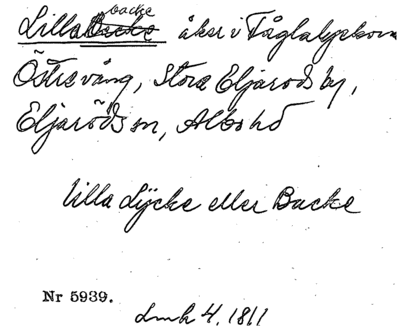 backe
Lilla Backe åker i Fåglalyckorna
Östrevång, Stora Eljaröds by,
Eljaröds sn, Albo hd
Lilla Lÿcke eller Backe
Nr 5939.
Lmk 4, 1811